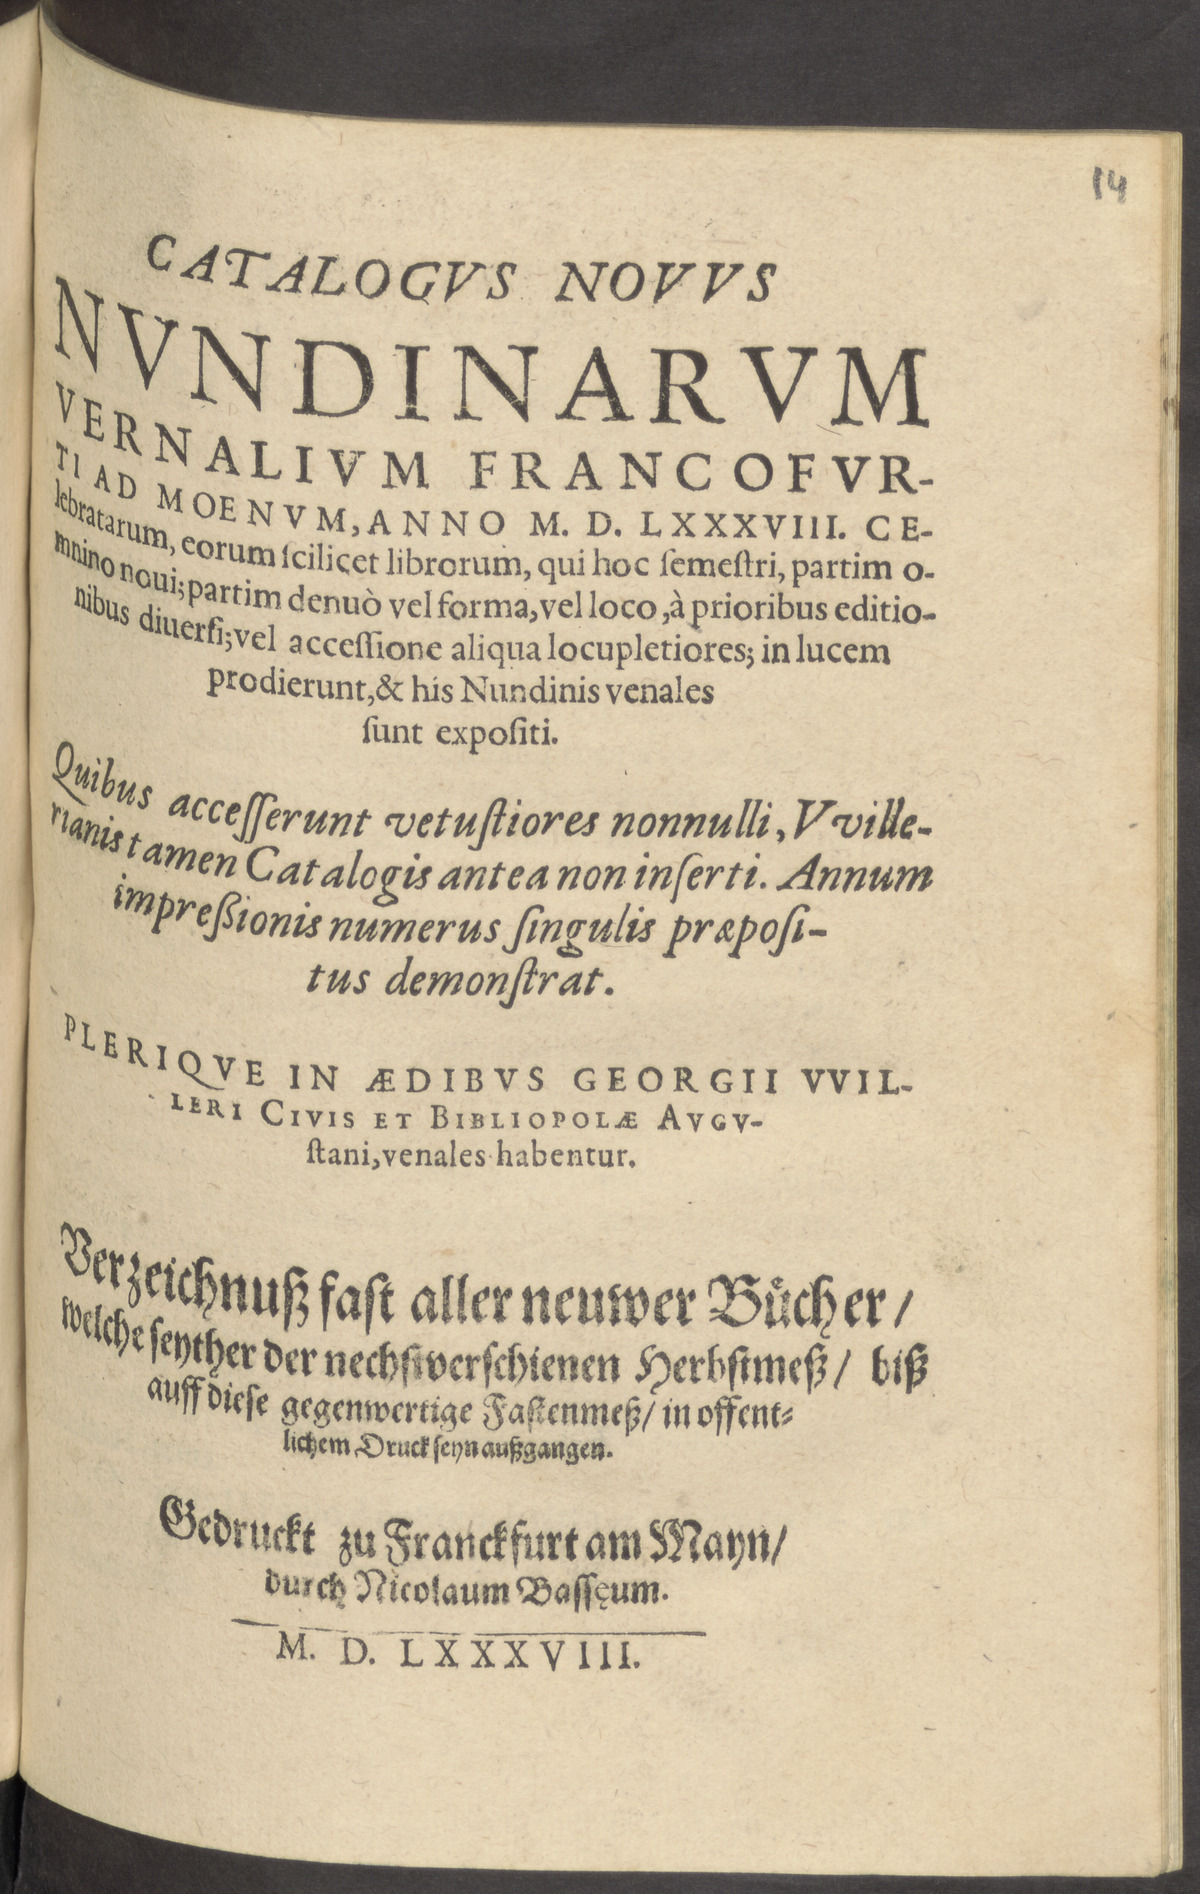 14
CATALOGVS NOVVS
NVNDINARVM
VERNALIVM FRANCOFVR-
TI AD MOENVM, ANNO M. D. LXXXVIII. CE-
lebratarum, eorum ſcilicet librorum, qui hoc ſemeſtri, partim o-
mnino noui; partim denuò vel forma, vel loco, à prioribus editio-
nibus diuerſi; vel acceſſione aliqua locupletiores; in lucem
prodierunt, & his Nundinis venales
ſunt expoſiti.
Quibus acceſſerunt vetuſtiores nonnulli, Vville-
rianis tamen Catalogis antea non inſerti. Annum
impreßionis numerus ſingulis præpoſi-
tus demonſtrat.
PLERIQVE IN ÆDIBVS GEORGII VVIL-
LERI CIVIS ET BIBLIOPOLÆ AVGV-
ſtani, venales habentur.
Verzeichnuß faſt aller neuwer Bücher/
welche ſeyther der nechſtverſchienen Herbſtmeß/ biß
auff dieſe gegenwertige Faſtenmeß/ in offent-
lichem Druck ſeyn außgangen.
Gedruckt zu Franckfurt am Mayn/
durch Nicolaum Baſſęum.
M. D. LXXXVIII.